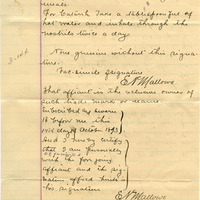 inhale.
For Catarrh Take a tablespoonful of
hot water and inhale through the
nostrils twice a day.
None genuine without this signa-
ture.
Fac-simile Signature
E N Mallowe
That affiant is the exclusive owner of
such trade mark or
Subscribed and sworn
to before me this
day of October 1893
And I hereby certify
that I am personally
with the foregoing
affiant and the sig-
nature affixed hereto is
his signature
E N Mallowe